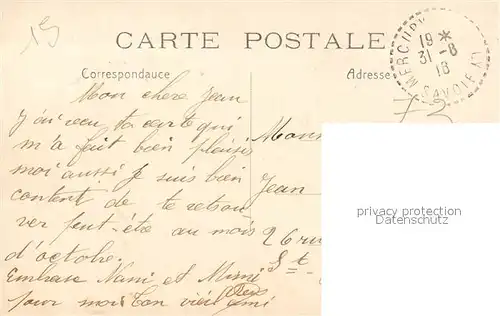 15
CARTE POSTALE
MERCURY
19 *
31 - 8
18
SAVOIE
Correspondance
Adresse
73
Mon cher Jean
J'ai reçu ta carte qui
m'a fait bien plaisir
moi aussi je suis bien
content de te retrou
ver peut-être au mois
d'octobre.
Embrasse Nani et Mimi
pour moi ton vieil ami
Jean
26 rue
St
privacy protection
Datenschutz